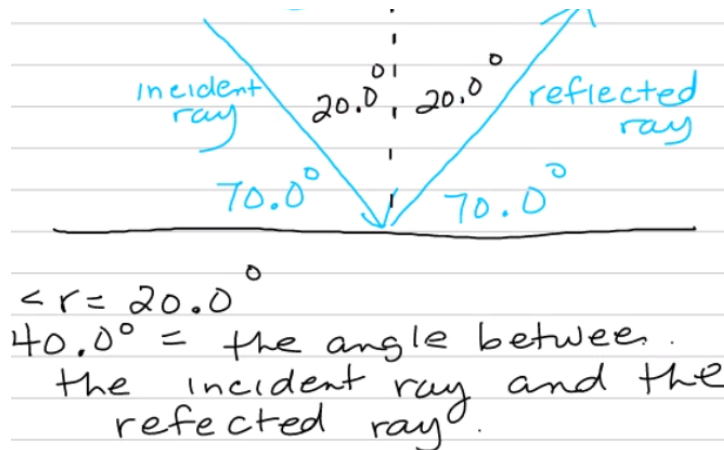 incident
ray
20.0°
20.0°
reflected
ray
70.0°
70.0°
<r = 20.0°
40.0° = the angle between.
the incident ray and the
refected ray.